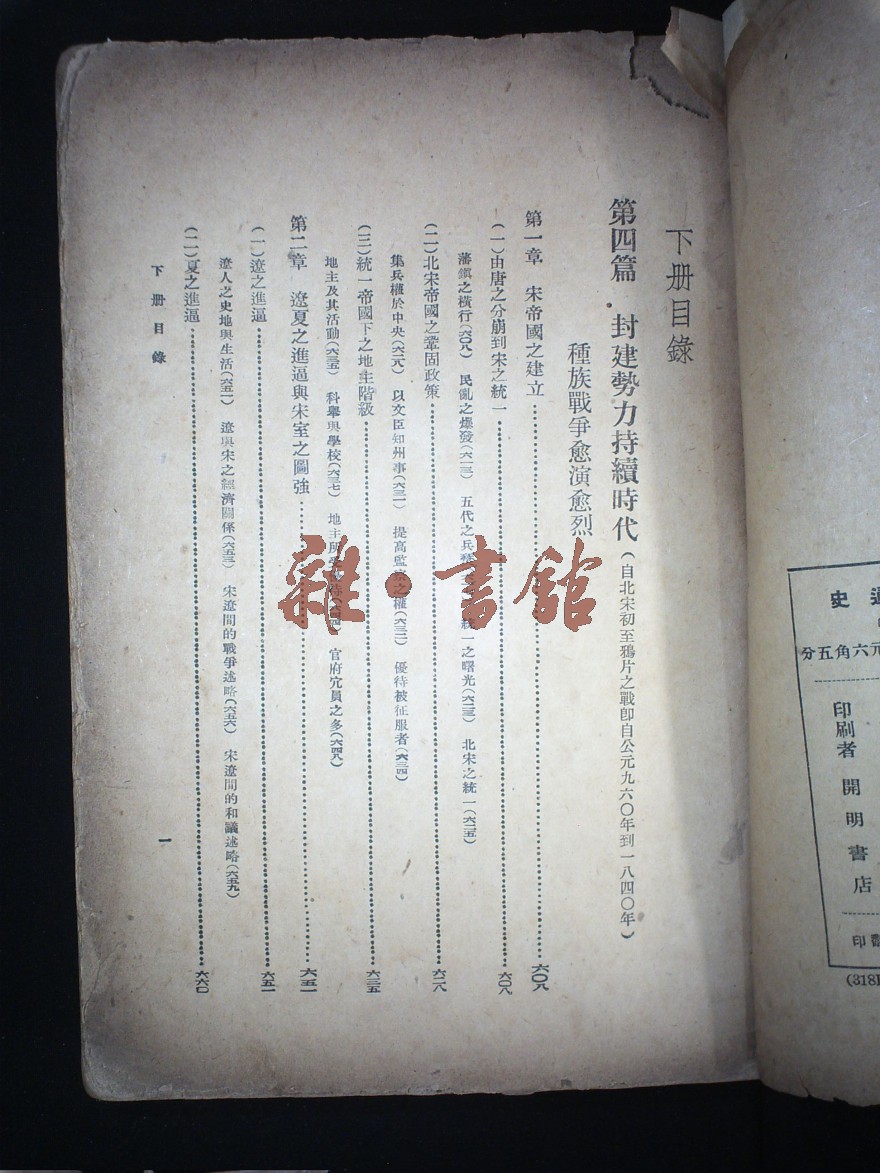 下册目錄
第四篇 封建勢力持續時代(自北宋初至鴉片之戰卽自公元九六〇年到一八四〇年)
種族戰爭愈演愈烈
第一章 宋帝國之建立……六〇八
(一)由唐之分崩到宋之統一……六〇八
藩鎭之橫行(六〇八) 民亂之爆發(六一三) 五代之兵 統一之曙光(六二三) 北宋之統一(六二五)
(二)北宋帝國之鞏固政策……六二八
集兵權於中央(六二八) 以文臣知州事(六三一) 提高監察之權(六三二) 優待被征服者(六三四)
(三)統一帝國下之地主階級……六三五
地主及其活動(六三五) 科舉與學校(六三七) 地主所受 官府冗員之多(六四八)
第二章 遼夏之進逼與宋室之圖強……六五一
(一)遼之進逼……六五一
遼人之史地與生活(六五一) 遼與宋之經濟關係(六五三) 宋遼間的戰爭述略(六五六) 宋遼間的和議述略(六五九)
(二)夏之進逼……六六〇
下册目錄
一
雜·書館
史
元六角五分
印刷者 開明書店
印
(318